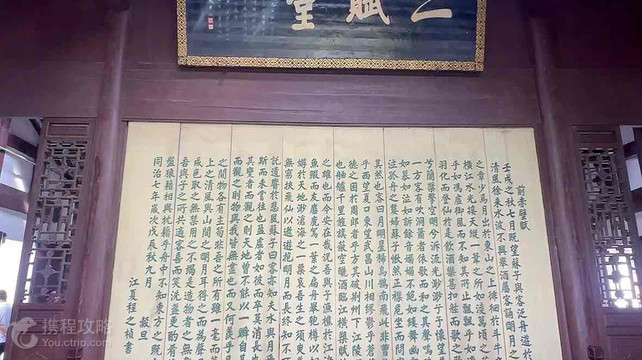 二賦堂
前赤壁賦
壬戌之秋七月既望蘇子與客泛舟遊於
清風徐來水波不興舉酒屬客誦明月
之章少焉月出於東山之上徘徊於斗牛
橫江水光接天縱一葦之所如凌萬頃之
乎如馮虛御風而不知其所止飄飄乎如
羽化而登仙於是飲酒樂甚扣舷而歌之
兮蘭槳擊空明兮泝流光渺渺兮予懷望
一方客有吹洞簫者倚歌而和之其聲嗚
如慕如泣如訴餘音嫋嫋不絕如縷舞幽
泣孤舟之嫠婦蘇子愀然正襟危坐而問
其然也客曰月明星稀烏鵲南飛此非曹
乎西望夏口東望武昌山川相繆鬱乎蒼
德之困於周郎者乎方其破荊州下江陵
也舳艫千里旌旗蔽空釃酒臨江橫槊賦
之雄也而今安在哉況吾與子漁樵於江
魚鰕而友麋鹿駕一葉之扁舟舉匏樽以
蜉於天地渺滄海之一粟哀吾生之須臾
無窮挾飛仙以遨遊抱明月而長終知不
託遺響於悲風蘇子曰客亦知夫水與月
斯而未嘗往也盈虛者如彼而卒莫消長
其變者而觀之則天地曾不能以一瞬自
而觀之則物與我皆無盡也而又何羨乎
之間物各有主苟非吾之所有雖一毫而
上之清風與山間之明月耳得之而為聲
成色取之無禁用之不竭是造物者之無
吾與子之所共適客喜而笑洗盞更酌
盤狼籍相與枕藉乎舟中不知東方之既
同治七年歲次戊辰秋九月 穀旦
江夏程之楨書
携程攻略
You.ctrip.com